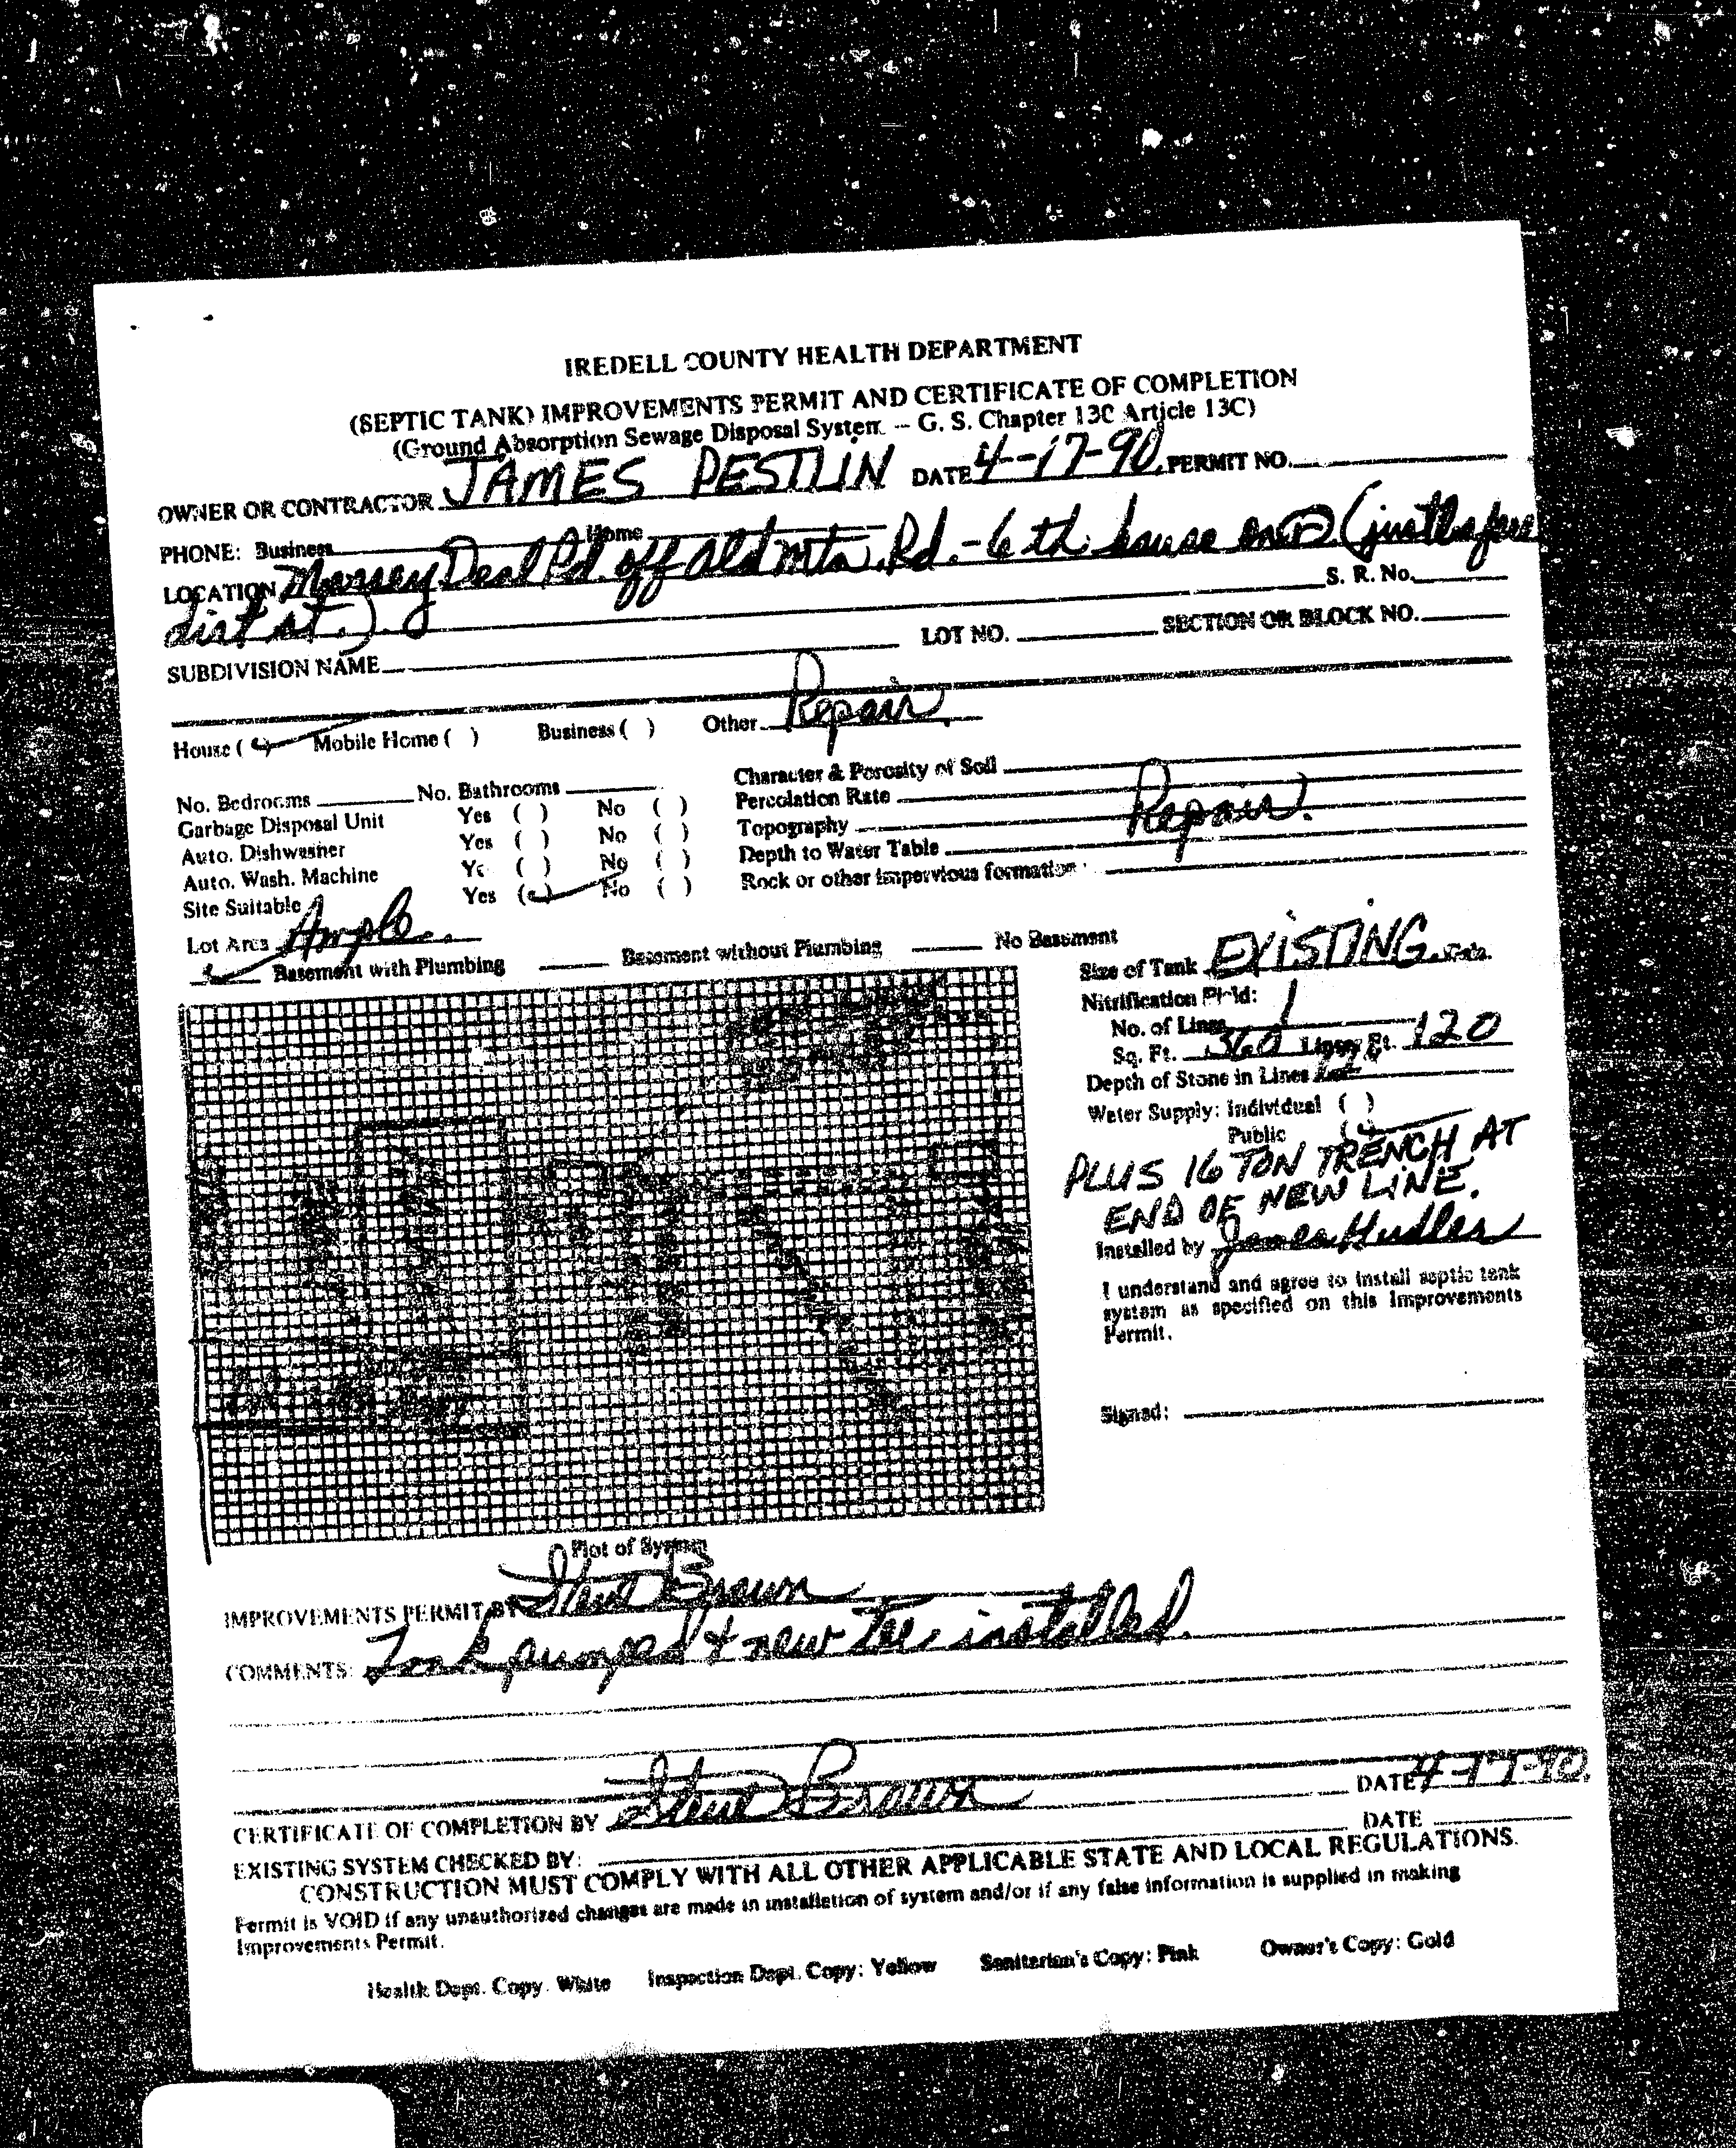 IREDELL COUNTY HEALTH DEPARTMENT
(SEPTIC TANK) IMPROVEMENTS PERMIT AND CERTIFICATE OF COMPLETION
(Ground Absorption Sewage Disposal System -- G. S. Chapter 130 Article 13C)
OWNER OR CONTRACTOR JAMES PESTLIN DATE 4-17-90 PERMIT NO.
PHONE: Business Home
LOCATION Deal Rd. off Old Mtn. Rd. - 6 th house on R (just before
S. R. No.
dirt st.).
SUBDIVISION NAME LOT NO. SECTION OR BLOCK NO.
House ( ) Mobile Home ( ) Business ( ) Other Repair
No. Bedrooms No. Bathrooms Character & Porosity of Soil
Garbage Disposal Unit Yes ( ) No ( ) Percolation Rate
Auto. Dishwasher Yes ( ) No ( ) Topography Repair.
Auto. Wash. Machine Ye ( ) No ( ) Depth to Water Table
Site Suitable Yes ( ) No ( ) Rock or other impervious formation
Lot Area Ample
Basement with Plumbing Basement without Plumbing No Basement
Size of Tank EXISTING Gals.
Nitrification Field:
No. of Lines 1
Sq. Ft. 360 Linear Ft. 120
Depth of Stone in Lines
Water Supply: Individual ( )
Public ( )
PLUS 16 TON TRENCH AT
END OF NEW LINE.
Installed by James Hudler
I understand and agree to install septic tank
system as specified on this Improvements
Permit.
Signed:
Plot of System
IMPROVEMENTS PERMIT BY Steve Brown
COMMENTS: Tank pumped & new Tee installed.
CERTIFICATE OF COMPLETION BY Steve Brown DATE 4-17-90.
EXISTING SYSTEM CHECKED BY: DATE
CONSTRUCTION MUST COMPLY WITH ALL OTHER APPLICABLE STATE AND LOCAL REGULATIONS.
Permit is VOID if any unauthorized changes are made in installation of system and/or if any false information is supplied in making
Improvements Permit.
Health Dept. Copy: White Inspection Dept. Copy: Yellow Sanitarian's Copy: Pink Owner's Copy: Gold